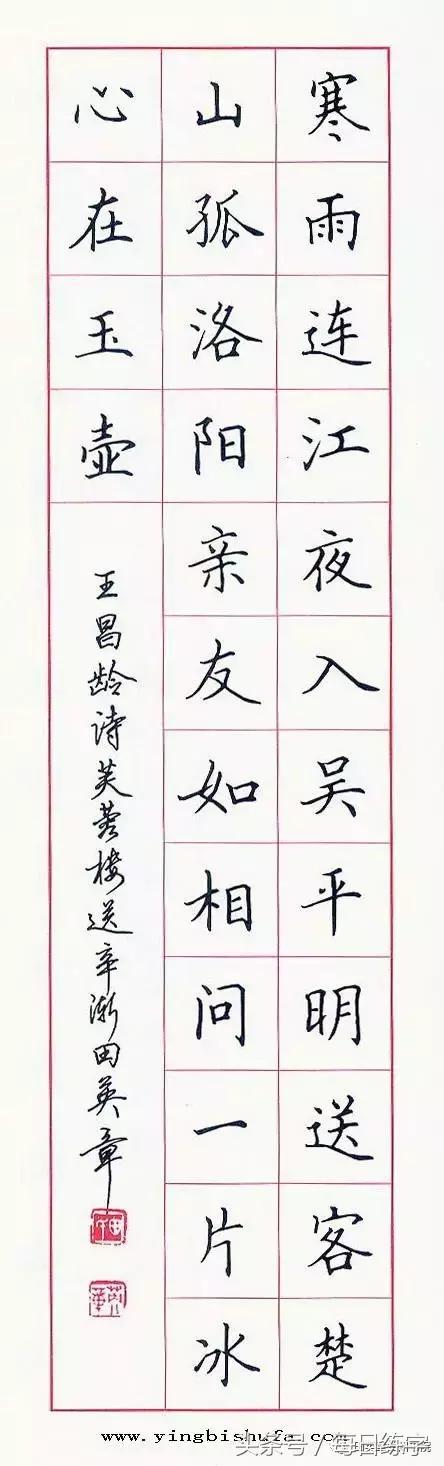 寒雨连江夜入吴平明送客楚
山孤洛阳亲友如相问一片冰
心在玉壶
王昌龄诗芙蓉楼送辛渐田英章
www.yingbishufa.com
头条号/每日练字